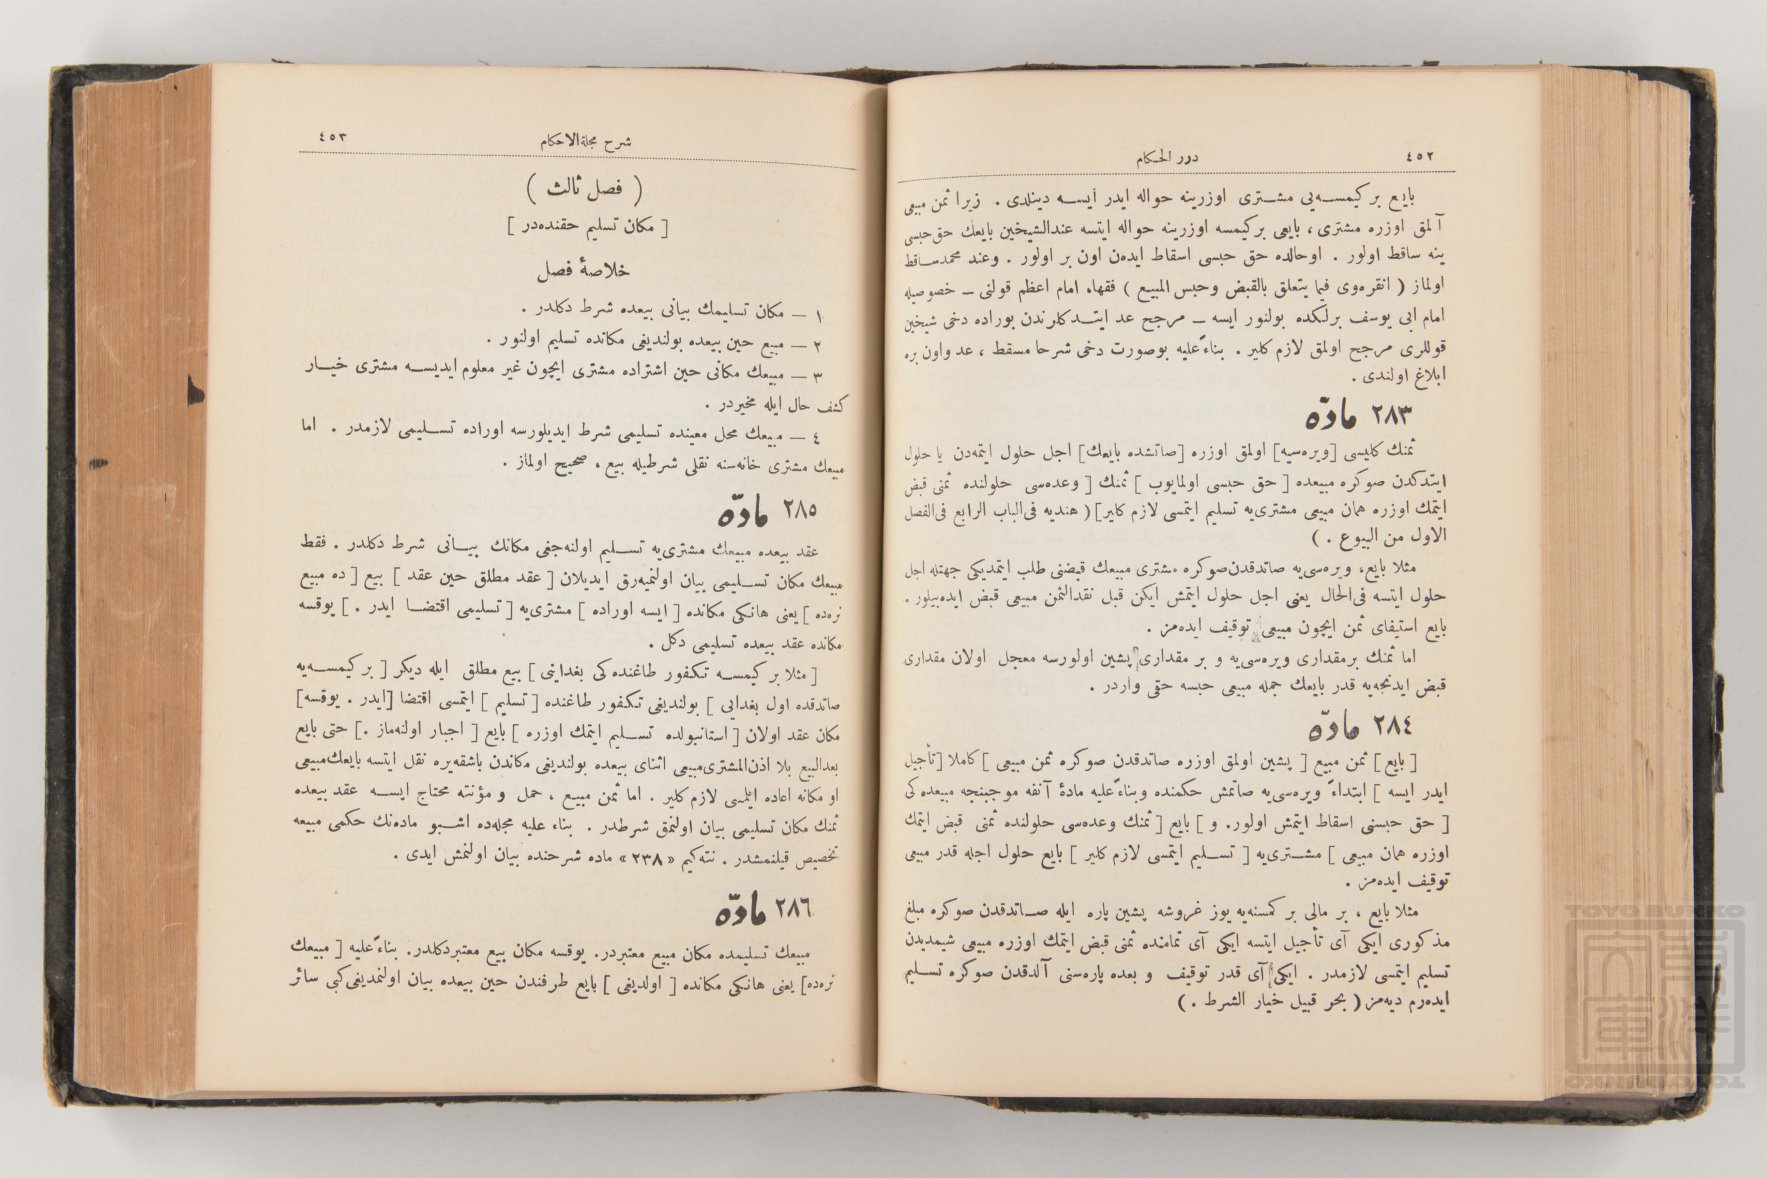 ٤٥٢
درر الحكام
بايع بر كيمسه‌يى مشترى اوزرينه حواله ايدر ايسه دينلدى . زيرا ثمن مبيعى
آلمق اوزره مشترى ، بايعى بركيمسه اوزرينه حواله ايتسه عندالشيخين بايعك حق حبسى
ينه ساقط اولور . اوحالده حق حبسى اسقاط ايدن اون بر اولور . وعند محمد ساقط
اولماز ( انقره‌وى فيما يتعلق بالقبض وحبس المبيع ) فقهاء امام اعظم قولنى ــ خصوصيله
امام ابى يوسف برلكده بولنور ايسه ــ مرجح عد ايتدكلرندن بوراده دخى شيخين
قوللرى مرجح اولمق لازم كلير . بناءً عليه بوصورت دخى شرحا مسقط ، عد واون بره
ابلاغ اولندى .
٢٨٣ مادّه
ثمنك كليسى [ويره‌سيه] اولمق اوزره [صاتشده بايعك] اجل حلول ايتمه‌دن يا حلول
ايتدكدن صوكره مبيعده [ حق حبسى اولمايوب ] ثمنك [ وعده‌سى حلولنده ثمنى قبض
ايتمك اوزره همان مبيعى مشترى‌يه تسليم ايتمسى لازم كلير] ( هنديه فى‌الباب الرابع فى‌الفصل
الاول من البيوع . )
مثلا بايع، ويره‌سى‌يه صاتدقدن‌صوكره مشترى مبيعك قبضنى طلب ايتمديكى جهتله اجل
حلول ايتسه فى‌الحال يعنى اجل حلول ايتمش ايكن قبل نقدالثمن مبيعى قبض ايده‌بيلور .
بايع استيفاى ثمن ايچون مبيعى توقيف ايده‌مز .
اما ثمنك برمقدارى ويره‌سى‌يه و بر مقدارى پشين اولورسه معجل اولان مقدارى
قبض ايدنجه‌يه قدر بايعك جمله مبيعى حبسه حقى واردر .
٢٨٤ مادّه
[ بايع ] ثمن مبيع [ پشين اولمق اوزره صاتدقدن صوكره ثمن مبيعى ] كاملا [تأجيل
ايدر ايسه ] ابتداءً ويره‌سى‌يه صاتمش حكمنده وبناءً عليه مادۀ آنفه موجبنجه مبيعده كى
[ حق حبسنى اسقاط ايتمش اولور. و ] بايع [ ثمنك وعده‌سى حلولنده ثمنى قبض ايتمك
اوزره همان مبيعى ] مشترى‌يه [ تسليم ايتمسى لازم كلير ] بايع حلول اجله قدر مبيعى
توقيف ايده‌مز .
مثلا بايع ، بر مالى بر كمسنه‌يه يوز غروشه پشين پاره ايله صاتدقدن صوكره مبلغ
مذكورى ايكى آى تأجيل ايتسه ايكى آى تمامنده ثمنى قبض ايتمك اوزره مبيعى شيمديدن
تسليم ايتمسى لازمدر . ايكى آى قدر توقيف و بعده پاره‌سنى آلدقدن صوكره تسليم
ايده‌رم ديه‌مز ( بحر قبيل خيار الشرط . )
شرح مجلة‌الاحكام
٤٥٣
( فصل ثالث )
[ مكان تسليم حقنده‌در ]
خلاصۀ فصل
١ ــ مكان تسليمك بيانى بيعده شرط دكلدر .
٢ ــ مبيع حين بيعده بولنديغى مكانده تسليم اولنور .
٣ ــ مبيعك مكانى حين اشتراده مشترى ايچون غير معلوم ايديسه مشترى خيار
كشف حال ايله مخيردر .
٤ ــ مبيعك محل معينده تسليمى شرط ايديلورسه اوراده تسليمى لازمدر . اما
مبيعك مشترى خانه‌سنه نقلى شرطيله بيع ، صحيح اولماز .
٢٨٥ مادّه
عقد بيعده مبيعك مشترى‌يه تسليم اولنه‌جغى مكانك بيانى شرط دكلدر . فقط
مبيعك مكان تسليمى بيان اولنميه‌رق ايديلان [ عقد مطلق حين عقد ] بيع [ ده مبيع
نره‌ده ] يعنى هانكى مكانده [ ايسه اوراده ] مشترى‌يه [ تسليمى اقتضا ايدر . ] يوقسه
مكانده عقد بيعده تسليمى دكل .
[ مثلا بر كيمسه تكفور طاغنده‌كى بغداينى ] بيع مطلق ايله ديكر [ بر كيمسه‌يه
صاتدقده اول بغدايى ] بولنديغى تكفور طاغنده [ تسليم ] ايتمسى اقتضا [ايدر . يوقسه]
مكان عقد اولان [ استانبولده تسليم ايتمك اوزره ] بايع [ اجبار اولنه‌ماز .] حتى بايع
بعدالبيع بلا اذن‌المشترى‌مبيعى اثناى بيعده بولنديغى مكاندن باشقه‌يره نقل ايتسه بايعك‌مبيعى
او مكانه اعاده ايتمسى لازم كلير . اما ثمن مبيع ، حمل و مؤنته محتاج ايسه عقد بيعده
ثمنك مكان تسليمى بيان اولنمق شرطدر . بناء عليه مجله‌ده اشبو ماده‌نك حكمى مبيعه
تخصيص قيلنمشدر . نته‌كيم «٢٣٨» ماده شرحنده بيان اولنمش ايدى .
٢٨٦ مادّه
مبيعك تسليمده مكان مبيع معتبردر. يوقسه مكان بيع معتبردكلدر. بناءً عليه [ مبيعك
نره‌ده] يعنى هانكى مكانده [ اولديغى ] بايع طرفندن حين بيعده بيان اولنمديغى‌كبى سائر
TOYO BUNKO